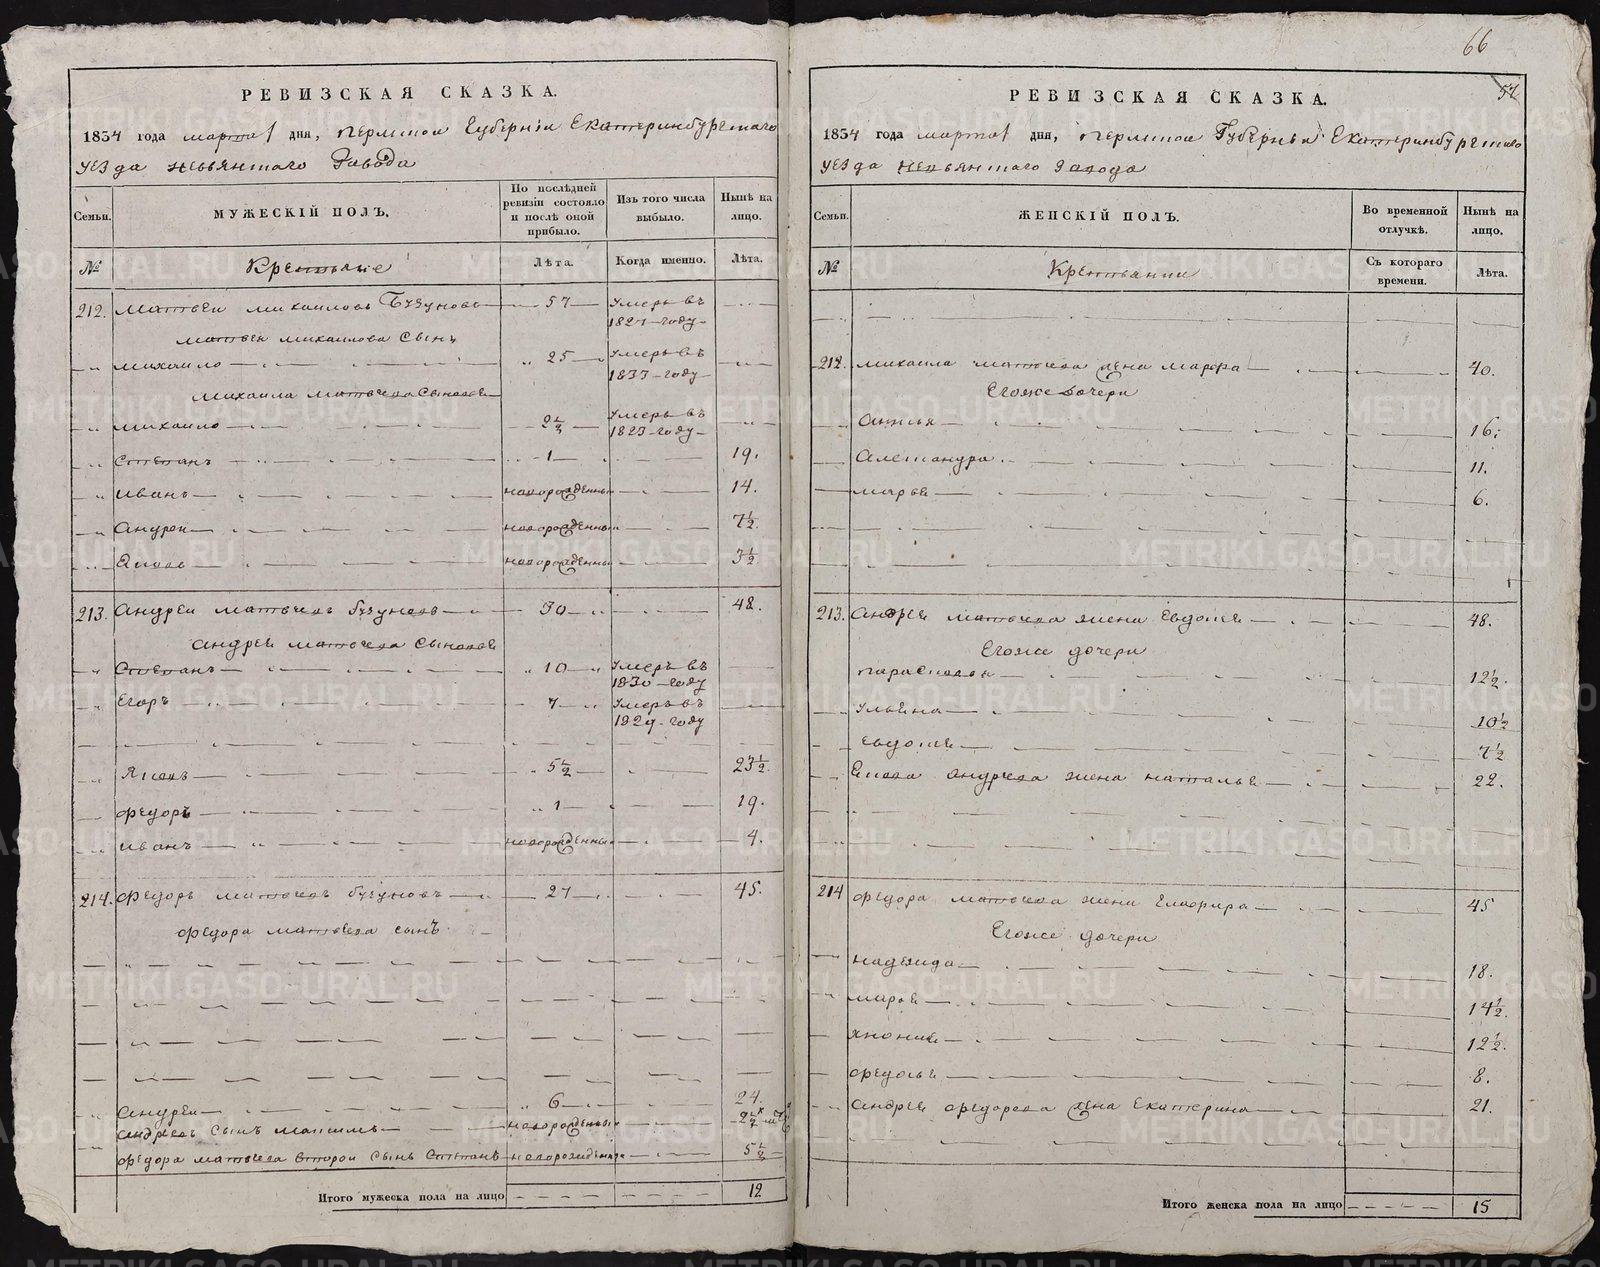 РЕВИЗСКАЯ СКАЗКА.
1834 года марта 1 дня, Пермской Губернiи Екатеринбургскаго
уезда Невьянскаго Завода
Семьи.
МУЖЕСКIЙ ПОЛЪ.
По послѣдней ревизiи состояло и послѣ оной прибыло.
Изъ того числа выбыло.
Нынѣ на лицо.
№
Крестьяне
Лѣта.
Когда именно.
Лѣта.
212. Матвеи Михаиловъ Бузуновъ 57 Умеръ въ 1827 году
Матвея Михаилова Сынъ
Михаило 25 Умеръ въ 1833 году
Михаила Матвеева Сыновеи
Михаило 2½ Умеръ въ 1823 году
Степанъ 1 19.
Иванъ новорожденныи 14.
Андреи новорожденныи 7½.
Яковъ новорожденныи 3½
213. Андреи Матвеевъ Бузуновъ 30 48.
Андрея Матвеева Сыновеи
Степанъ 10 Умеръ въ 1830 году
Егоръ 7 Умеръ въ 1829 году
Яковъ 5½ 23½.
Федоръ 1 19.
Иванъ новорожденныи 4.
214. Федоръ Матвеевъ Бузуновъ 27 45.
Федора Матвеева сынъ
Андреи 6 24.
Андреевъ Сынъ Максимъ новорожденныи
Федора Матвеева второи Сынъ Степанъ новорожденныи 5½
Итого мужеска пола на лицо 12
66
57
РЕВИЗСКАЯ СКАЗКА.
1834 года марта 1 дня, Пермской Губернiи Екатеринбургскаго
уезда Невьянскаго Завода
Семьи.
ЖЕНСКIЙ ПОЛЪ.
Во временной отлучкѣ.
Нынѣ на лицо.
№
Крестьянки
Съ котораго времени.
Лѣта.
212. Михаила Матвеева жена Марфа 40.
Егоже дочери
16.
Александра 11.
Марья 6.
213. Андрея Матвеева жена Евдокея 48.
Егоже дочери
Парасковья 12½.
Ульяна 10½
Евдокея 7½
Якова Андреева жена Наталья 22.
214 Федора Матвеева жена Глафира 45
Егоже дочери
Надежда 18.
Марья 14½.
12½.
Федосья 8.
Андрея Федорова жена Екатерина 21.
Итого женска пола на лицо 15
METRIKI.GASO-URAL.RU